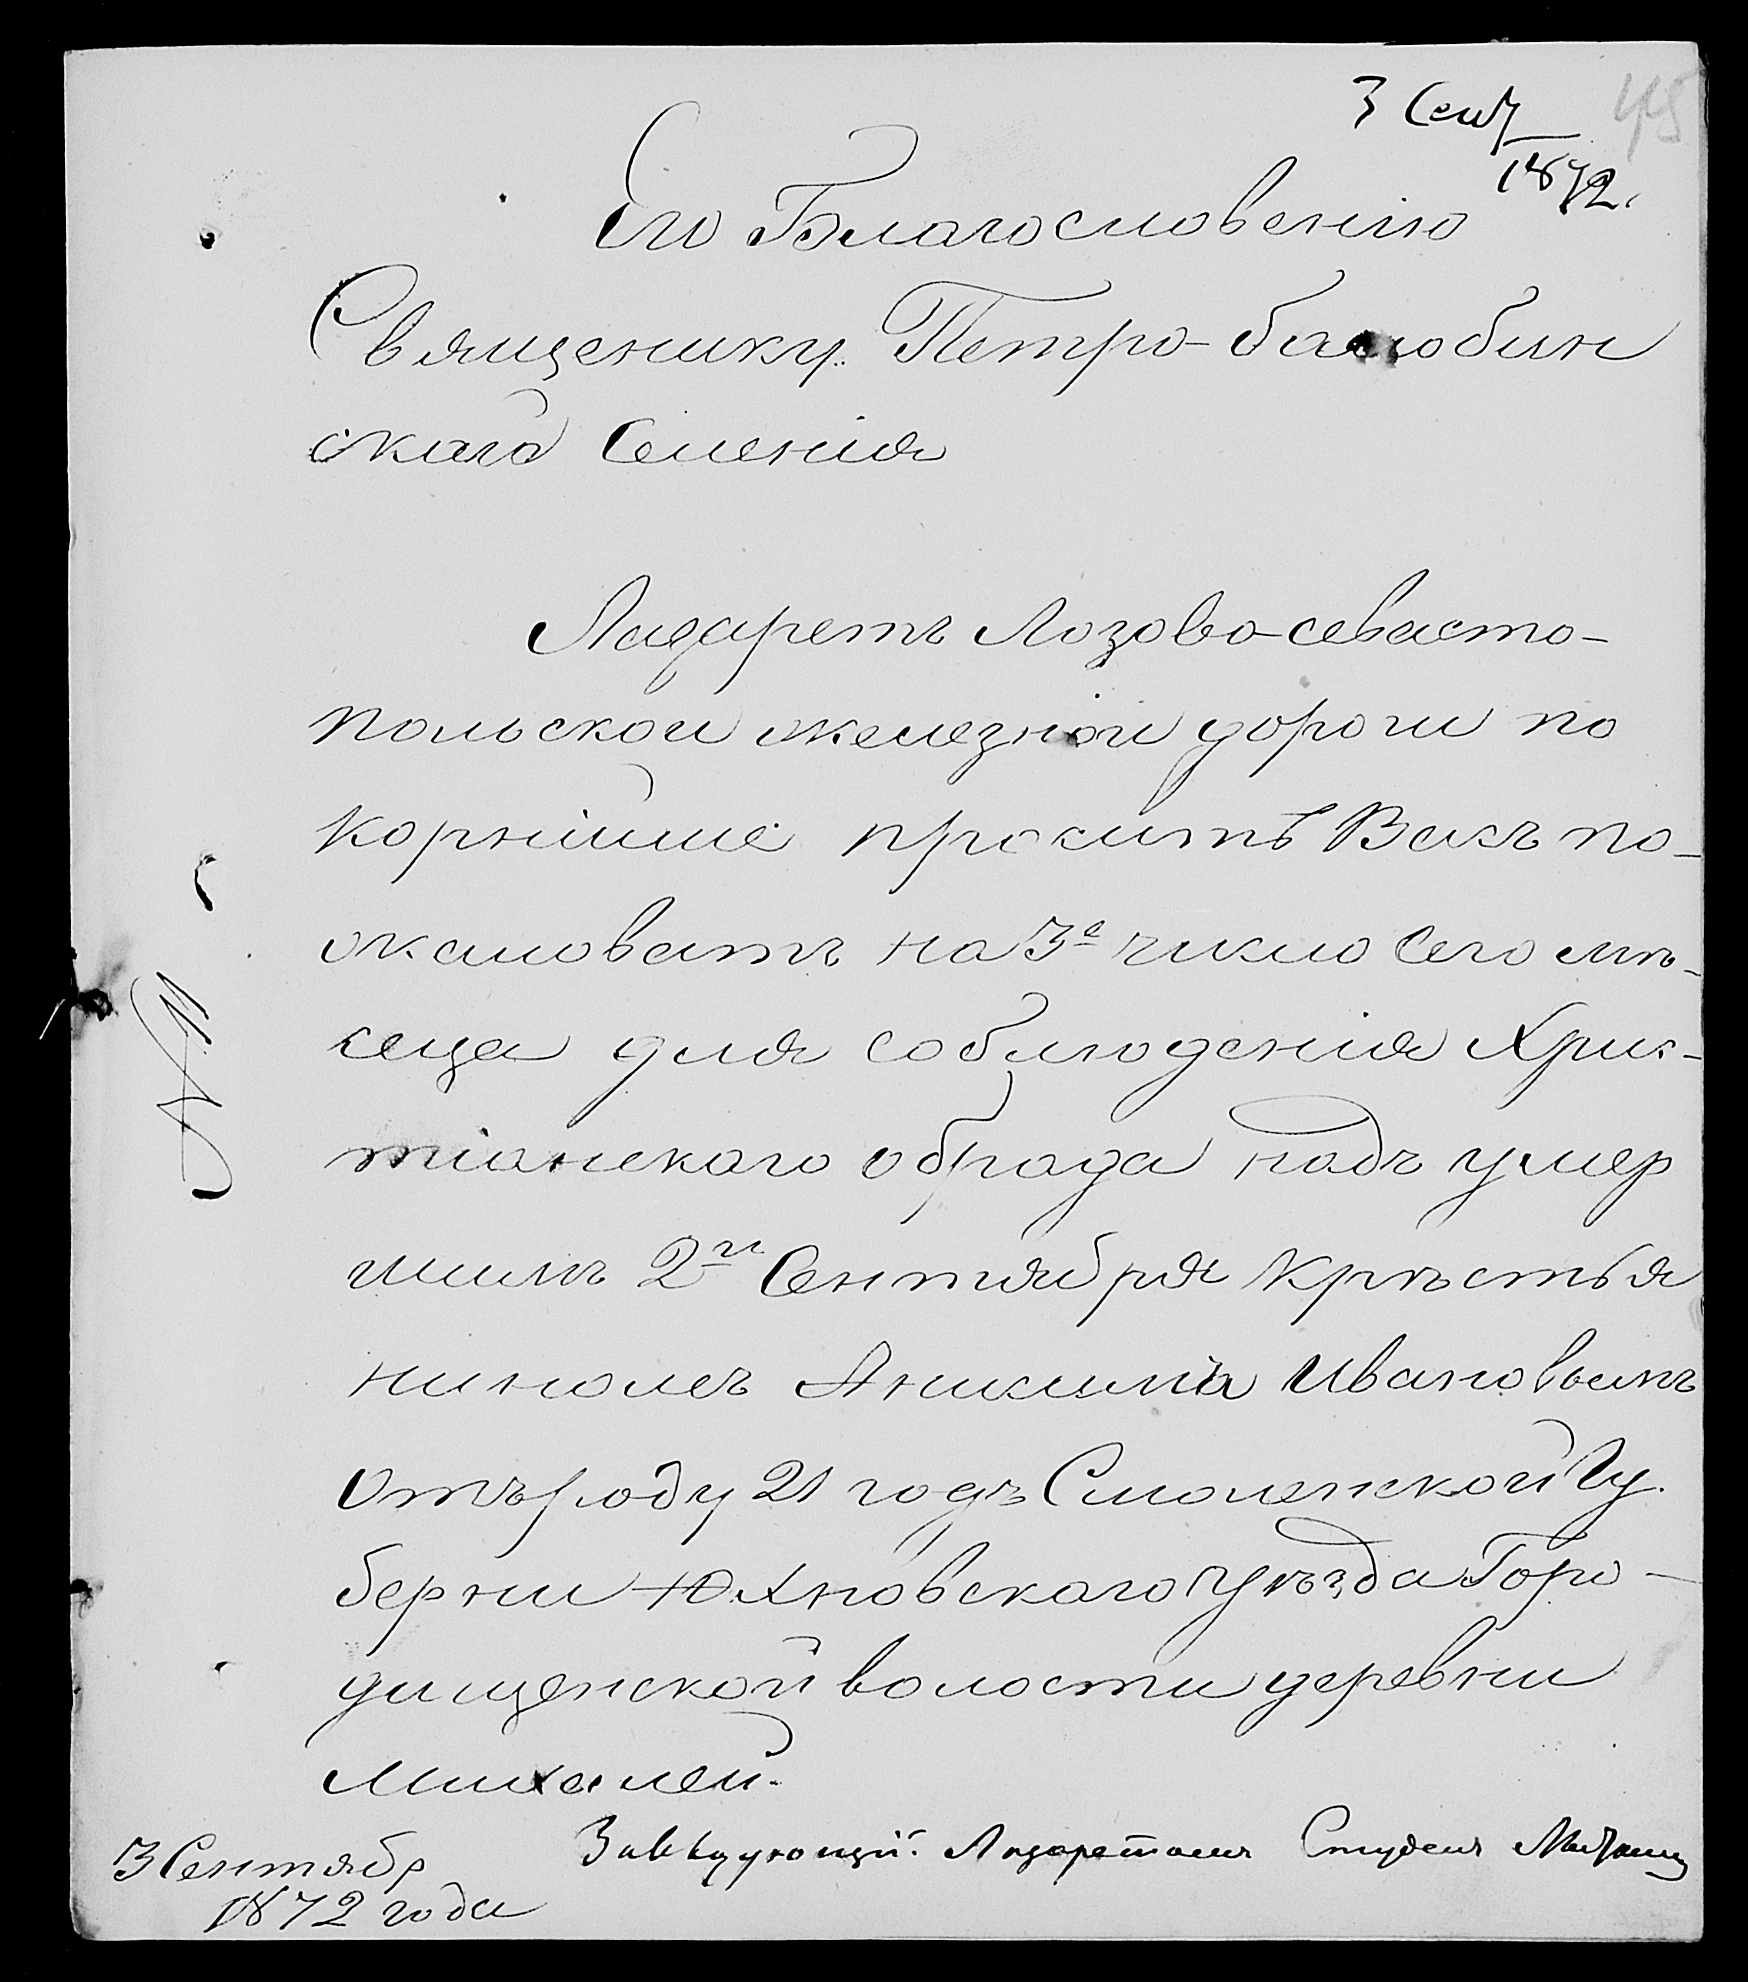 3 Сент
1872.
45
Его Благословению
Священику Петро-балюбин
скаго Селенiя
Лазаретъ Лозово-севасто-
польской железной дороги по
корнѣйше проситъ Васъ по-
жаловатъ на 3е число сего мѣ-
сеца для соблюденiя Хрис-
тiанскаго обрада надъ умер
шимъ 2го Сентября крѣстья
ниномъ Аникима Ивановымъ
отъ роду 21 годъ Смоленской Гу.
бернии Юхновскаго Уѣзда Горо-
дищенской волости деревни
Михалей.
N 11
3 Сентябр
1872 года
Завѣдующiй Лазаретомъ Студентъ